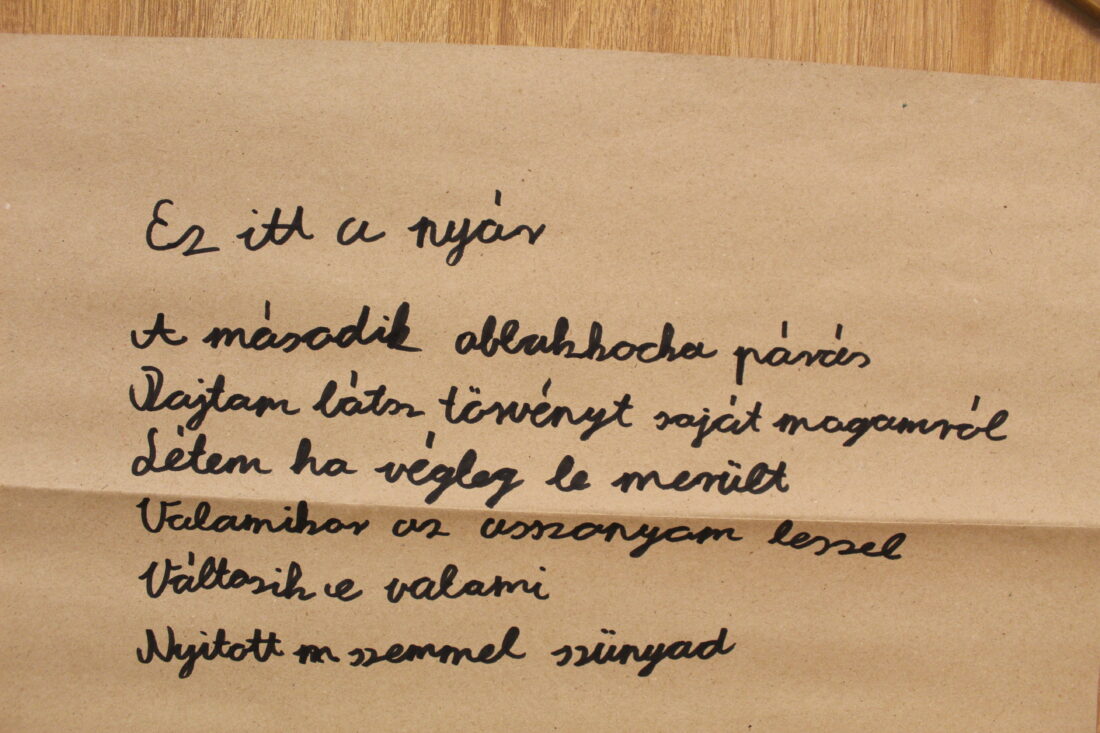 Ez itt a nyár
A második ablakkocka párás
Rajtam látsz törvényt saját magamról
Létem ha végleg le merült
Valamikor az asszanyam leszel
Változik e valami
Nyitott m szemmel szünyad